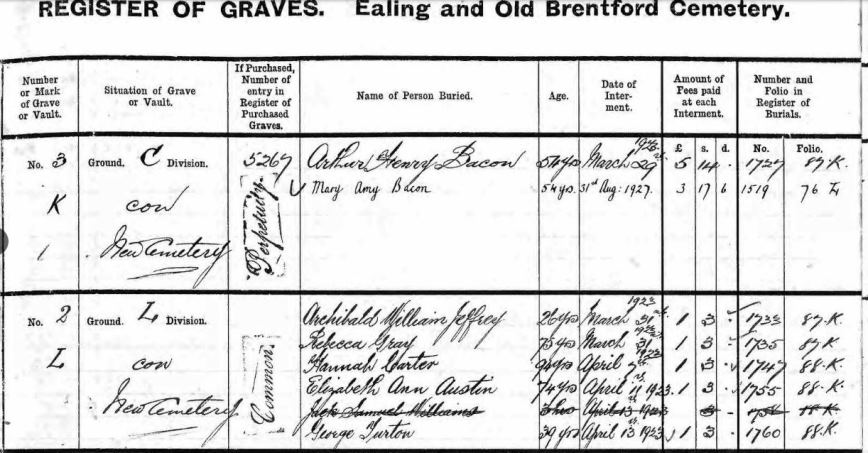 REGISTER OF GRAVES. Ealing and Old Brentford Cemetery.
Number or Mark of Grave or Vault.
Situation of Grave or Vault.
If Purchased, Number of entry in Register of Purchased Graves.
Name of Person Buried.
Age.
Date of Interment.
Amount of Fees paid at each Interment.
Number and Folio in Register of Burials.
£ s. d. No. Folio.
No. 3 Ground. C Division. 5267 Arthur Henry Bacon March 29 5 14 . 1727 87 K.
K con Mary Amy Bacon 54 yrs. 31st Aug: 1927. 3 17 6 1519 76 L
1 New Cemetery Perpetuity
No. 2 Ground. L Division. Archibald William Jeffrey 26 yrs March 31st 1923 1 3 - 1733 87.K.
Rebecca Gray 75 yrs March 31 1923 1 3 - 1735 87.K
L con Hannah Carter April 1923 1 3 - 1747 88.K.
Common. Elizabeth Ann Austin 74 yrs April 11 1923. 1 3 - 1755 88.K.
New Cemetery Jack Samuel Williams April 13 1923 3 -
George Turton 39 yrs April 13 1923 1 3 - 1760 88.K.